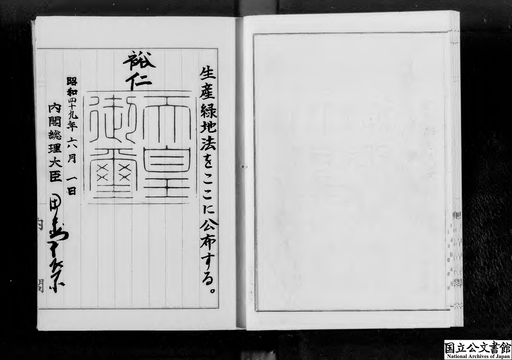 生産緑地法をここに公布する。
裕仁
天皇
御璽
昭和四十九年六月一日
内閣総理大臣 田中角榮
内閣
国立公文書館
National Archives of Japan